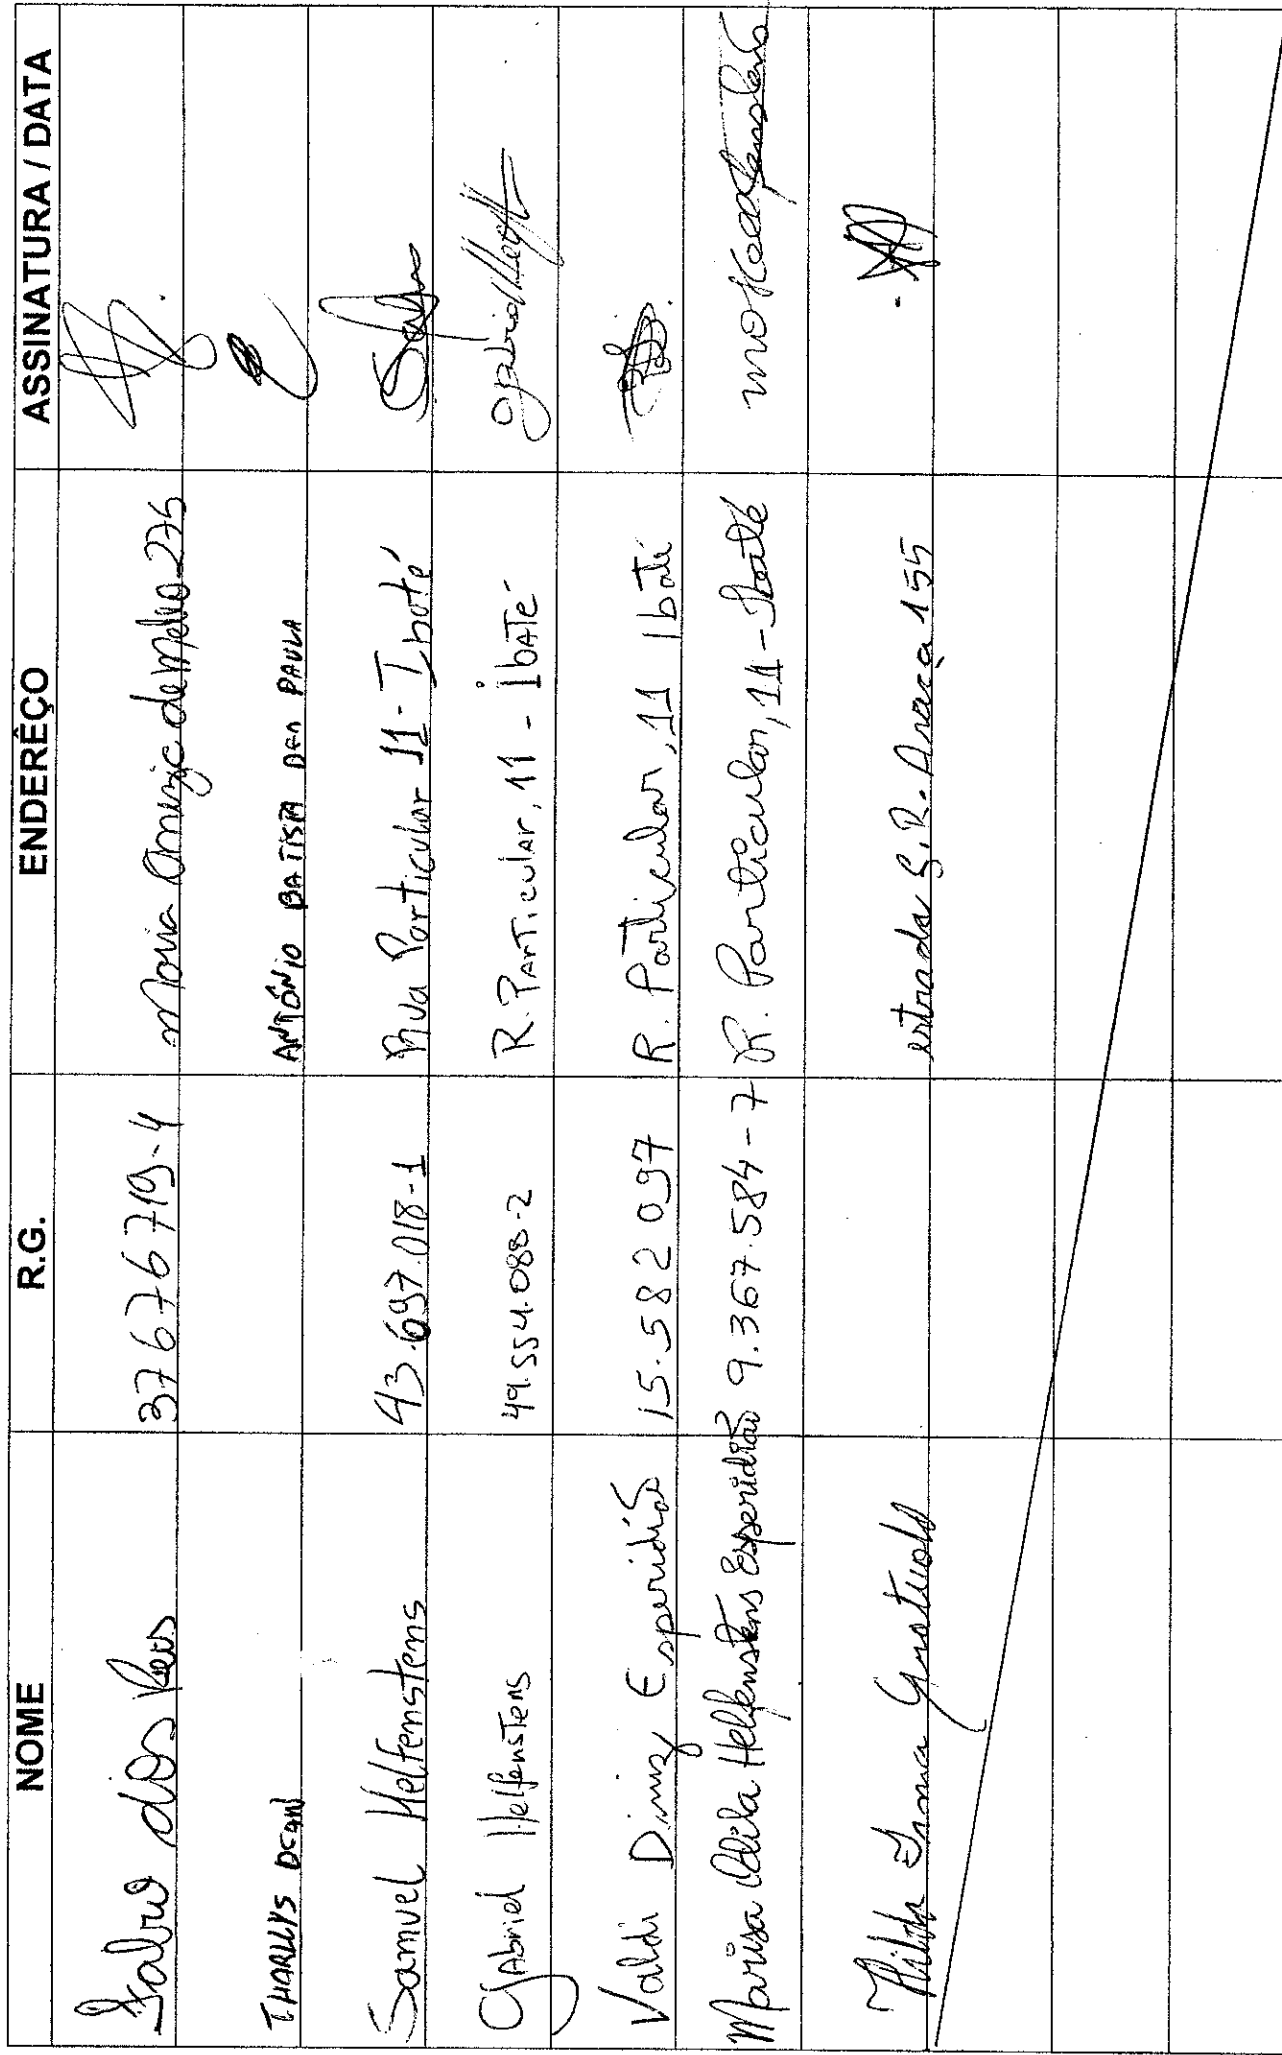 NOME R.G. ENDERÊÇO ASSINATURA / DATA
Fabio dos Reis 37676719-4 Maria de Melo 275
THARLLYS ANTÔNIO BATISTA PAULA
Samuel Helfenstens 43.697.018-1 Rua Particular 11 - Ibaté
Gabriel Helfenstens 49.554.088-2 R. Particular, 11 - Ibaté
Valdir Diniz Esperidião 15.582 097 R. Particular, 11 Ibaté
Marisa Helfenstens Esperidião 9.367.584-7 R. Particular, 11 - Ibaté
Hilda Irma estrada 155